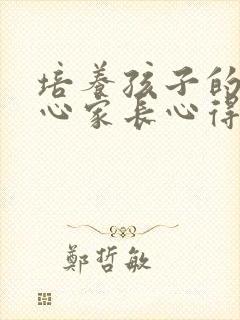 培养孩子的
心家长心得
鄭哲敏